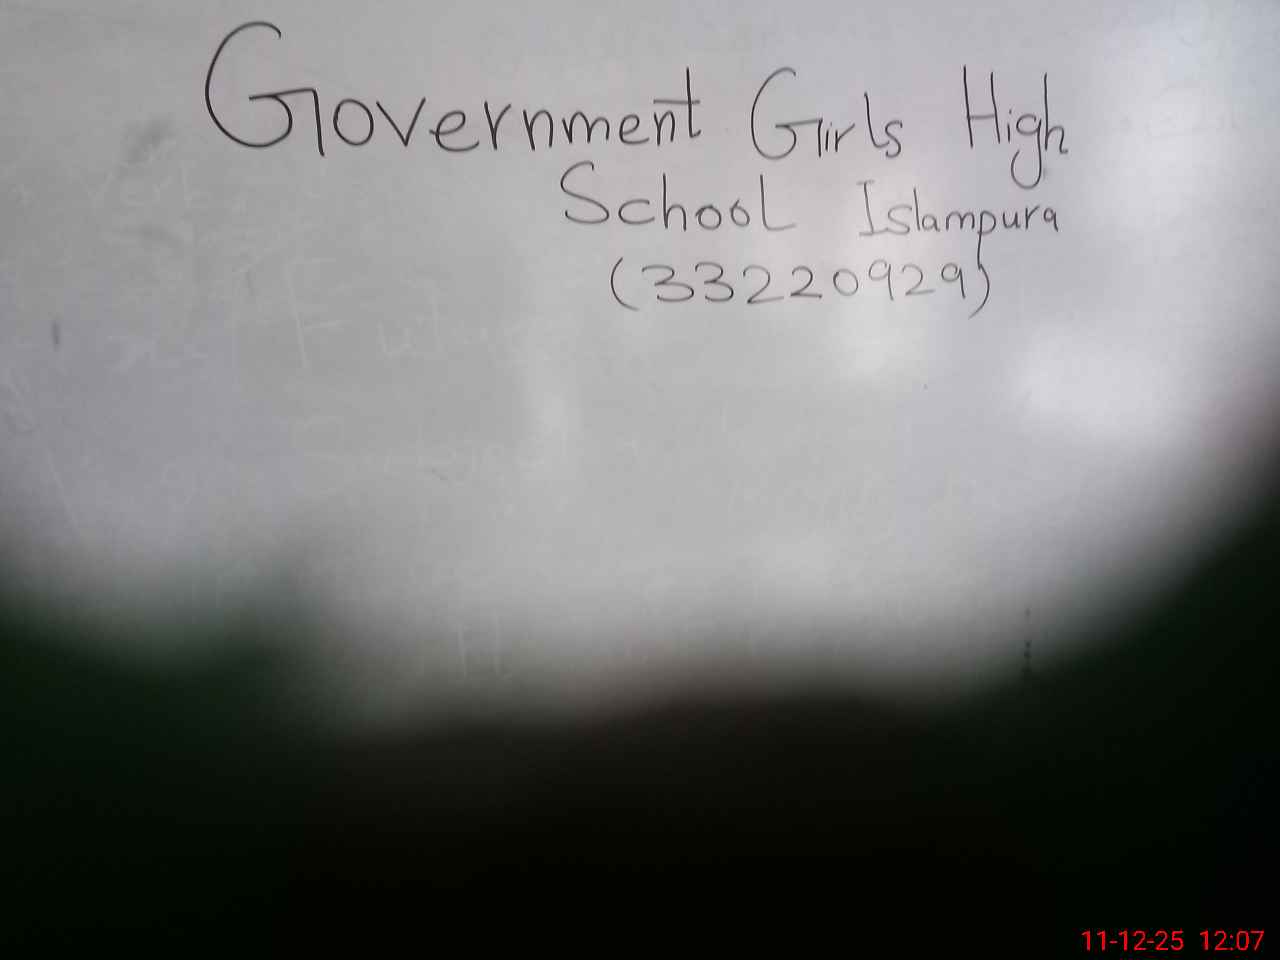 Government Girls High
School Islampura
(33220929)
11-12-25 12:07